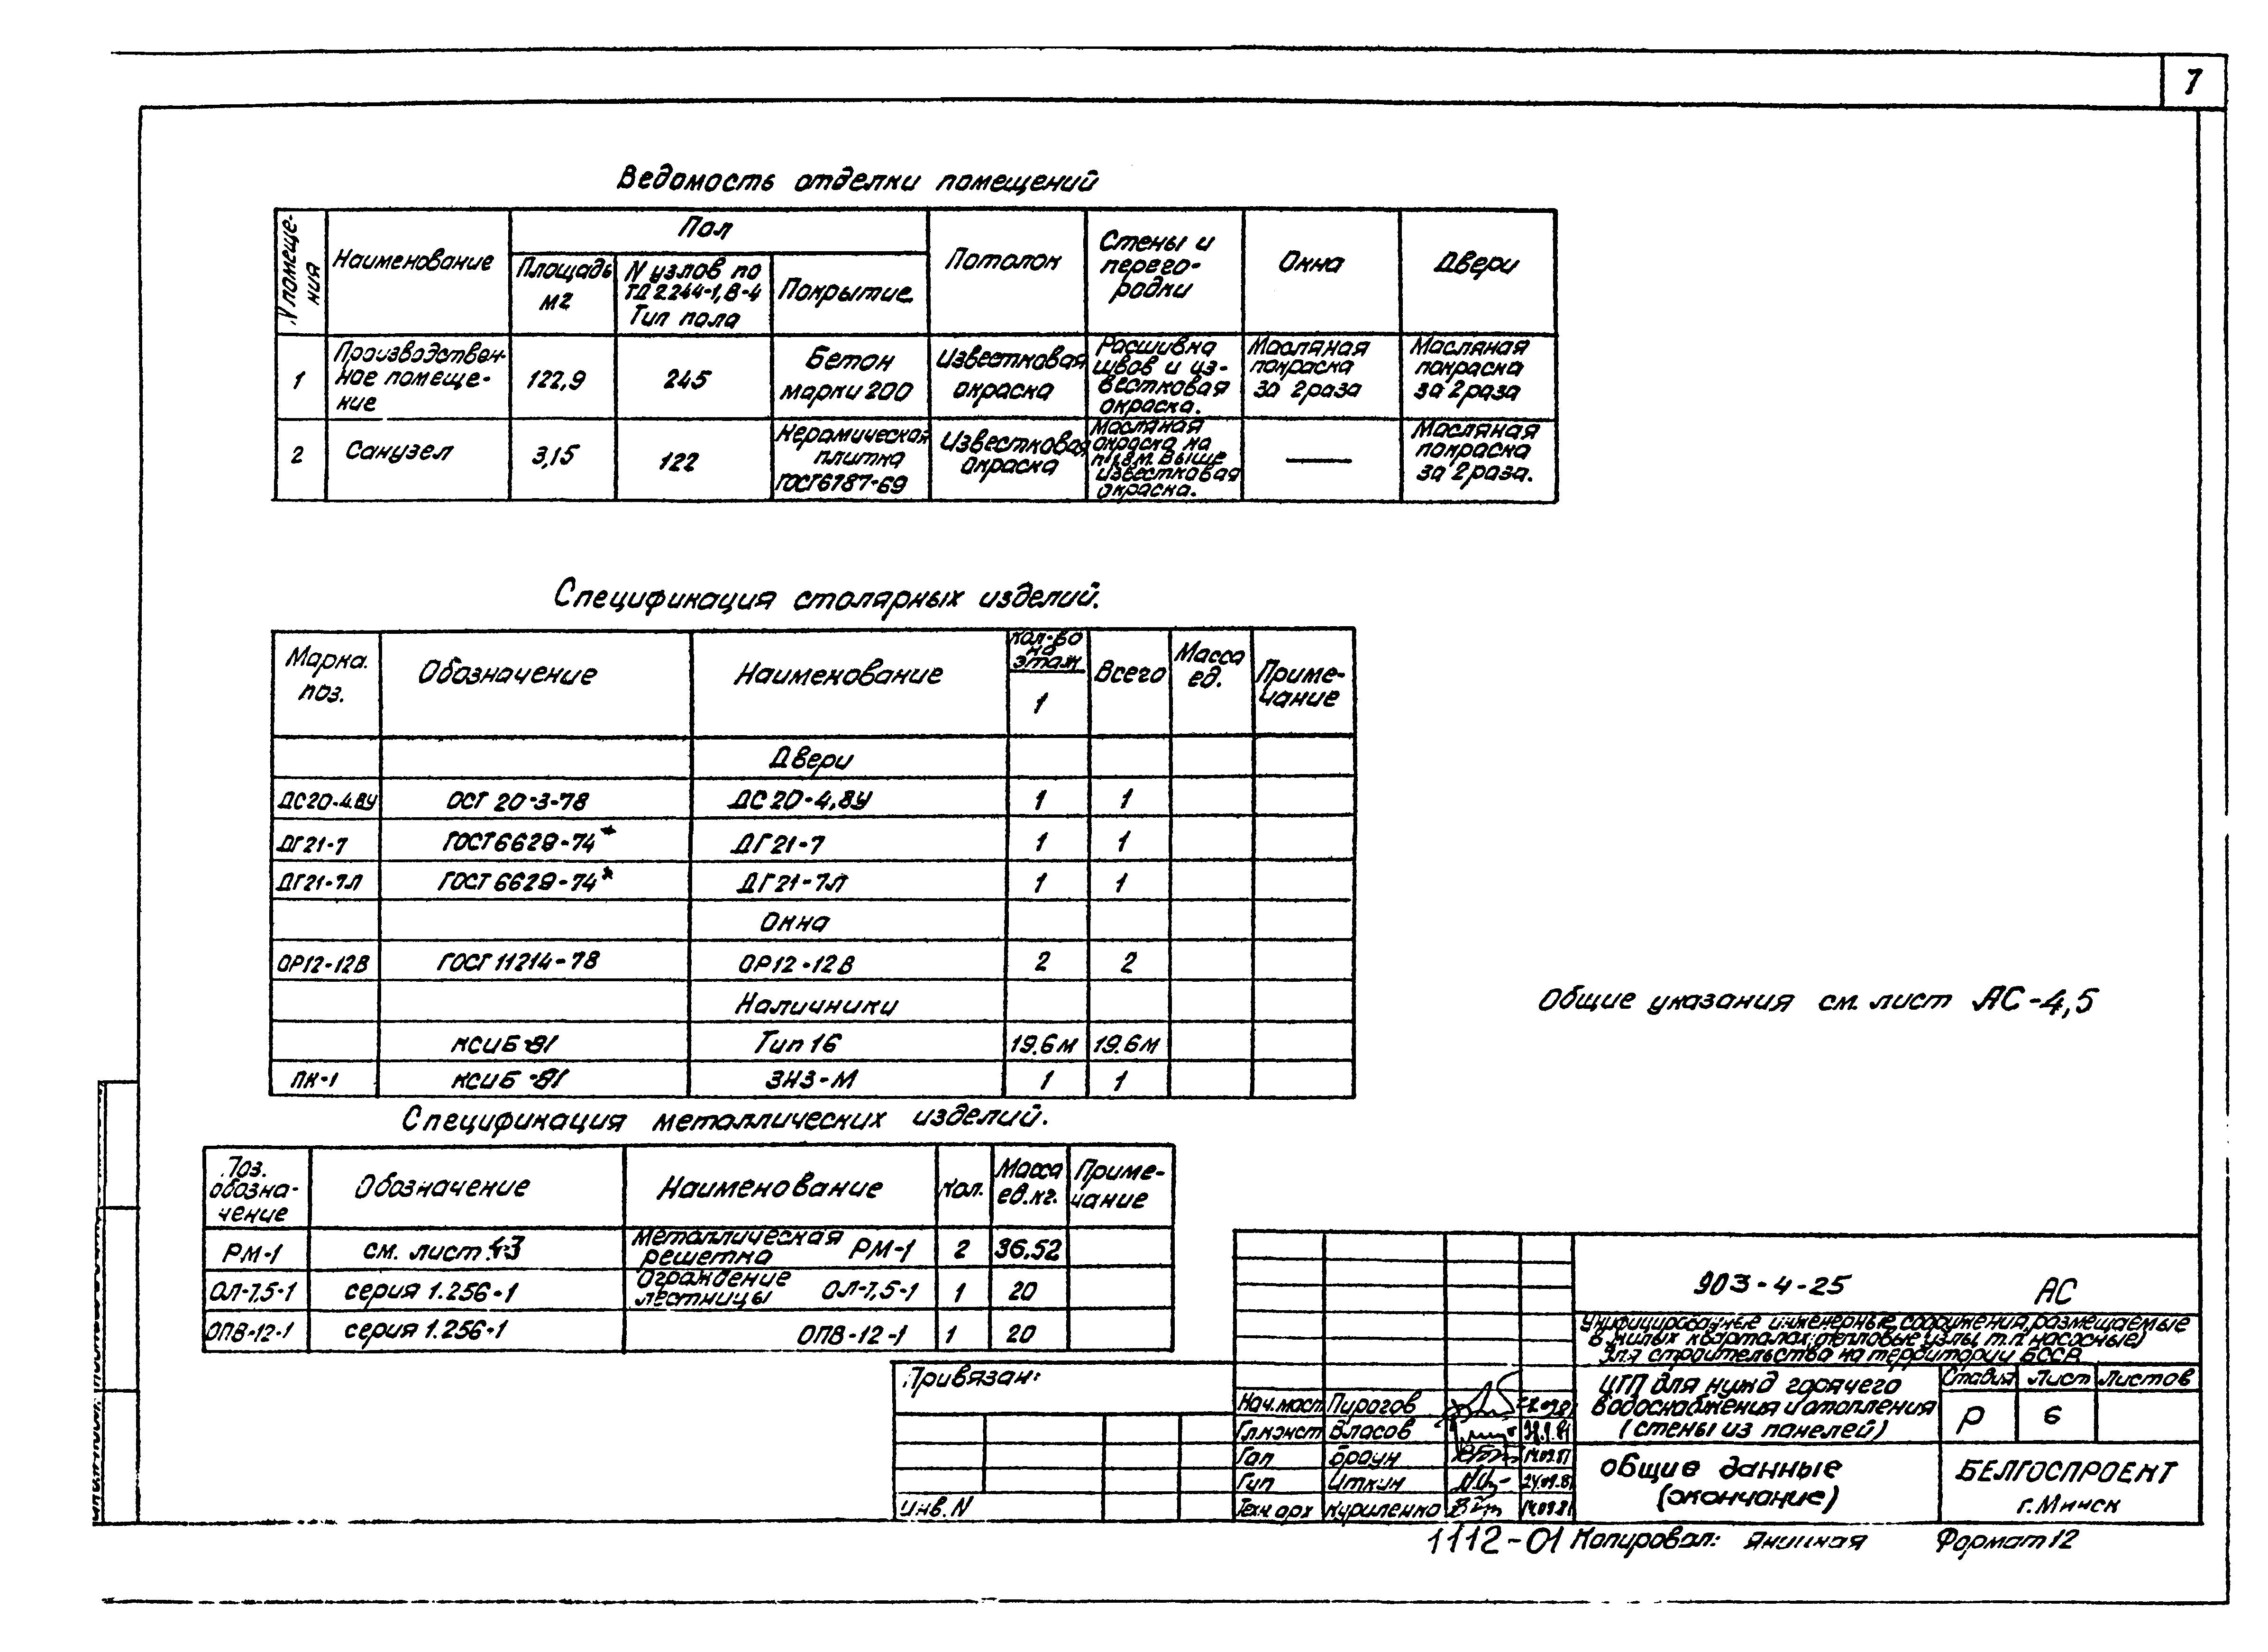 7
Ведомость отделки помещений
N помеще-
ния
Наименование
Пол
Площадь
м2
N узлов по
ТД 2.244-1, В-4
Тип пола
Покрытие
Потолок
Стены и
перего-
родки
Окна
Двери
1
Производствен-
ное помеще-
ние
122,9
245
Бетон
марки 200
Известковая
окраска
Расшивка
швов и из-
вестковая
окраска.
Масляная
покраска
за 2 раза
Масляная
покраска
за 2 раза
2
Санузел
3,15
122
Керамическая
плитка
ГОСТ 6787-69
Известковая
окраска
Масляная
окраска на
h 1,8 м. Выше
известковая
окраска.
Масляная
покраска
за 2 раза.
Спецификация столярных изделий.
Марка.
поз.
Обозначение
Наименование
Кол-во
на
этаж
1
Всего
Масса
ед.
Приме-
чание
Двери
ДС20-4.8У ОСТ 20-3-78 ДС 20-4,8У 1 1
ДГ21-7 ГОСТ 6629-74* ДГ21-7 1 1
ДГ21-7Л ГОСТ 6629-74* ДГ21-7Л 1 1
Окна
ОР12-12В ГОСТ 11214-78 ОР12-12В 2 2
Наличники
КСИБ-81 Тип 16 19.6м 19.6м
ПК-1 КСИБ-81 ЗНЗ-М 1 1
Общие указания см. лист АС-4,5
Спецификация металлических изделий.
Поз.
обозна-
чение
Обозначение
Наименование
Кол.
Масса
ед.кг.
Приме-
чание
РМ-1 см. лист 43 Металлическая
решетка РМ-1 2 36.52
ОЛ-7,5-1 серия 1.256-1 Ограждение
лестницы ОЛ-7,5-1 1 20
ОПВ-12-1 серия 1.256-1 ОПВ-12-1 1 20
Привязан:
Инв. N
903-4-25 АС
Унифицированные инженерные сооружения, размещаемые
в жилых кварталах (тепловые узлы, т.п. насосные)
для строительства на территории БССР
ЦТП для нужд горячего
водоснабжения и отопления
(стены из панелей)
Стадия Лист Листов
Р 6
Нач.маст. Пирогов
Гл.констр Власов
Гап Браун
Гип Иткин 24.09.81
Техн.арх Куриленко
общие данные
(окончание)
БЕЛГОСПРОЕКТ
г. Минск
1112-01 Копировал: Формат 12